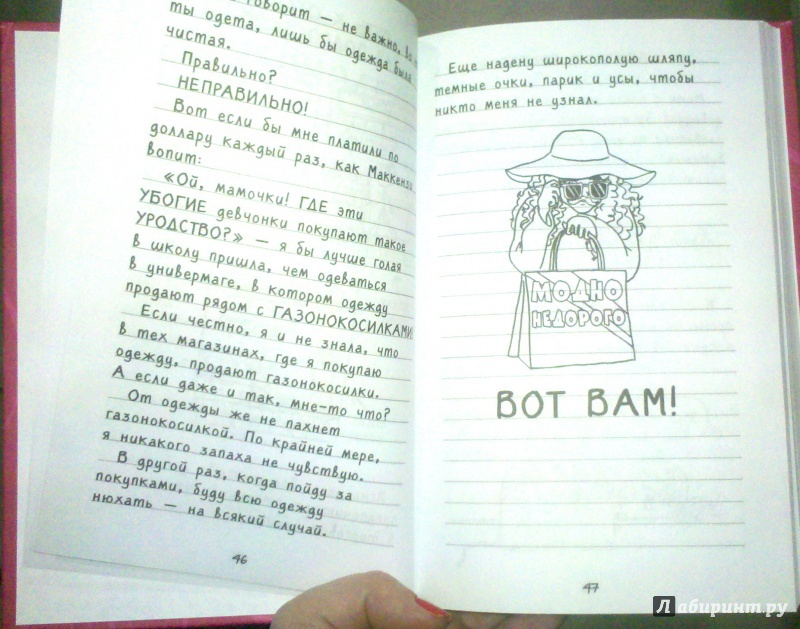 говорит — не важно, во
ты одета, лишь бы одежда была
чистая.
Правильно?
НЕПРАВИЛЬНО!
Вот если бы мне платили по
доллару каждый раз, как Маккензи
вопит:
«Ой, мамочки! ГДЕ эти
УБОГИЕ девчонки покупают такое
УРОДСТВО?» — я бы лучше голая
в школу пришла, чем одеваться
в универмаге, в котором одежду
продают рядом с ГАЗОНОКОСИЛКАМИ!
Если честно, я и не знала, что
в тех магазинах, где я покупаю
одежду, продают газонокосилки.
А если даже и так, мне-то что?
От одежды же не пахнет
газонокосилкой. По крайней мере,
я никакого запаха не чувствую.
В другой раз, когда пойду за
покупками, буду всю одежду
нюхать — на всякий случай.
46
Еще надену широкополую шляпу,
темные очки, парик и усы, чтобы
никто меня не узнал.
МОДНО
НЕДОРОГО
ВОТ ВАМ!
47
Лабиринт.ру